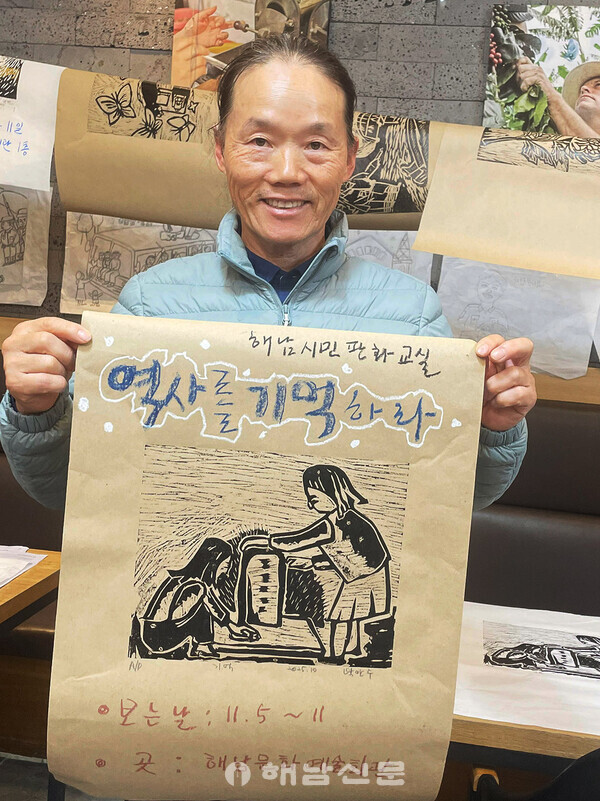 11일
1층
해남시민판화교실
역사를 기억하라
A/P 기억 2025.10
보는날 : 11. 5 ~ 11
곳 : 해남문화예술회관
해남신문